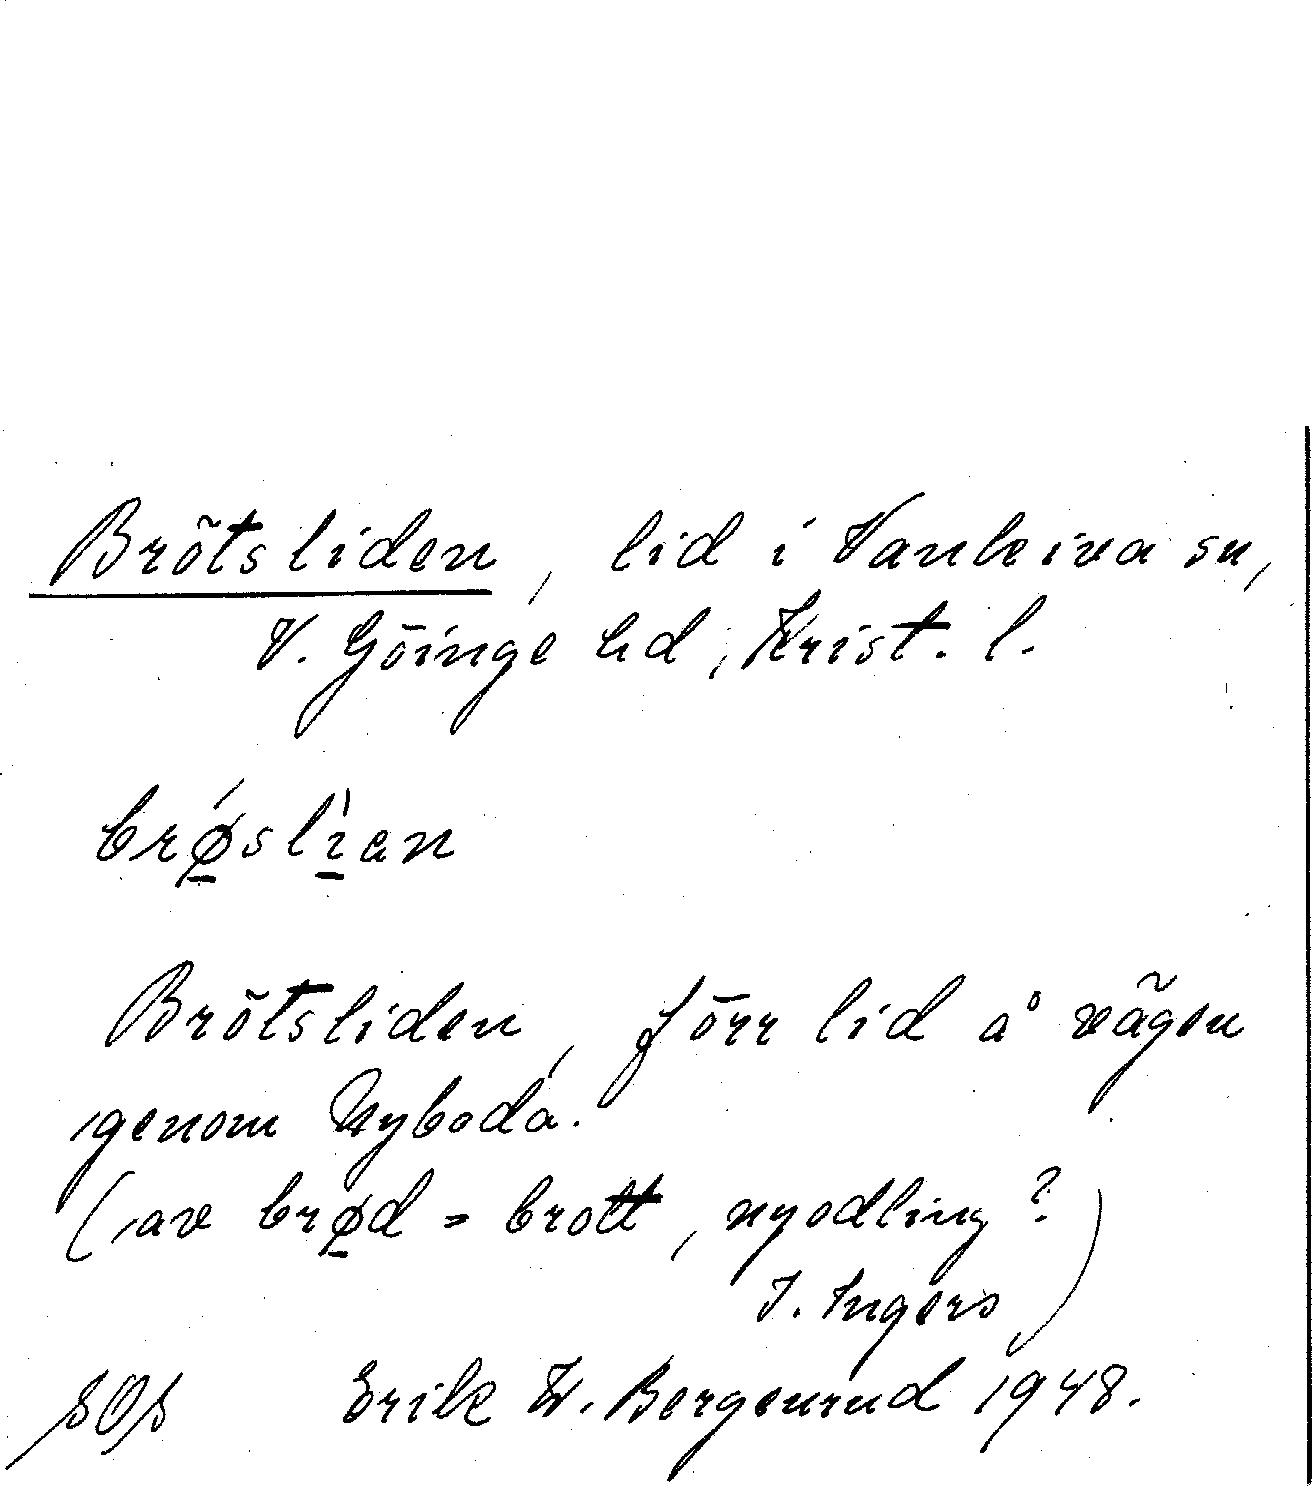 Brötsliden, lid i Vankiva sn,
V. Göinge hd, Krist. l.
brǿslìan
Brötsliden, förr lid å vägen
genom Nyboda.
(av brød = brott, nyodling?
I. Ingers)
SOS Erik W. Bergenrud 1948.